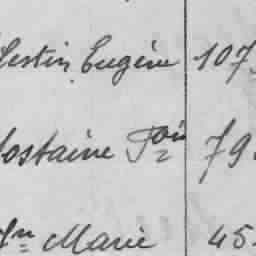 lestin Eugène 107
lostaine Foi 79
Marie 45